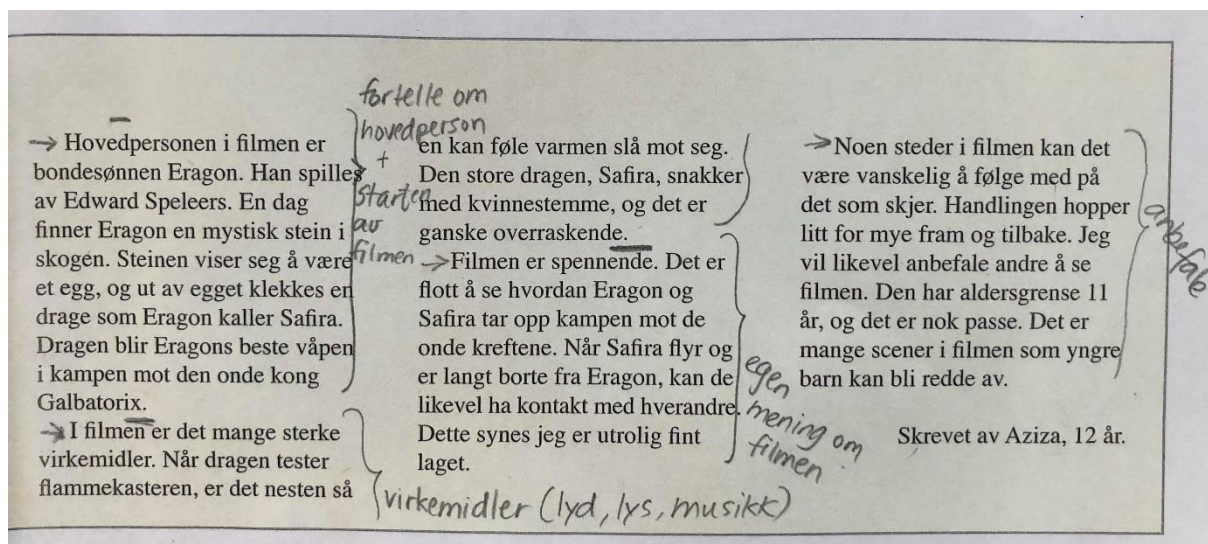 fortelle om
hovedperson
+
starten
av
filmen
→ Hovedpersonen i filmen er
bondesønnen Eragon. Han spilles
av Edward Speleers. En dag
finner Eragon en mystisk stein i
skogen. Steinen viser seg å være
et egg, og ut av egget klekkes en
drage som Eragon kaller Safira.
Dragen blir Eragons beste våpen
i kampen mot den onde kong
Galbatorix.
→ I filmen er det mange sterke
virkemidler. Når dragen tester
flammekasteren, er det nesten så
virkemidler (lyd, lys, musikk)
en kan føle varmen slå mot seg.
Den store dragen, Safira, snakker
med kvinnestemme, og det er
ganske overraskende.
→ Filmen er spennende. Det er
flott å se hvordan Eragon og
Safira tar opp kampen mot de
onde kreftene. Når Safira flyr og
er langt borte fra Eragon, kan de
likevel ha kontakt med hverandre.
Dette synes jeg er utrolig fint
laget.
egen
mening om
filmen
→ Noen steder i filmen kan det
være vanskelig å følge med på
det som skjer. Handlingen hopper
litt for mye fram og tilbake. Jeg
vil likevel anbefale andre å se
filmen. Den har aldersgrense 11
år, og det er nok passe. Det er
mange scener i filmen som yngre
barn kan bli redde av.
anbefale
Skrevet av Aziza, 12 år.